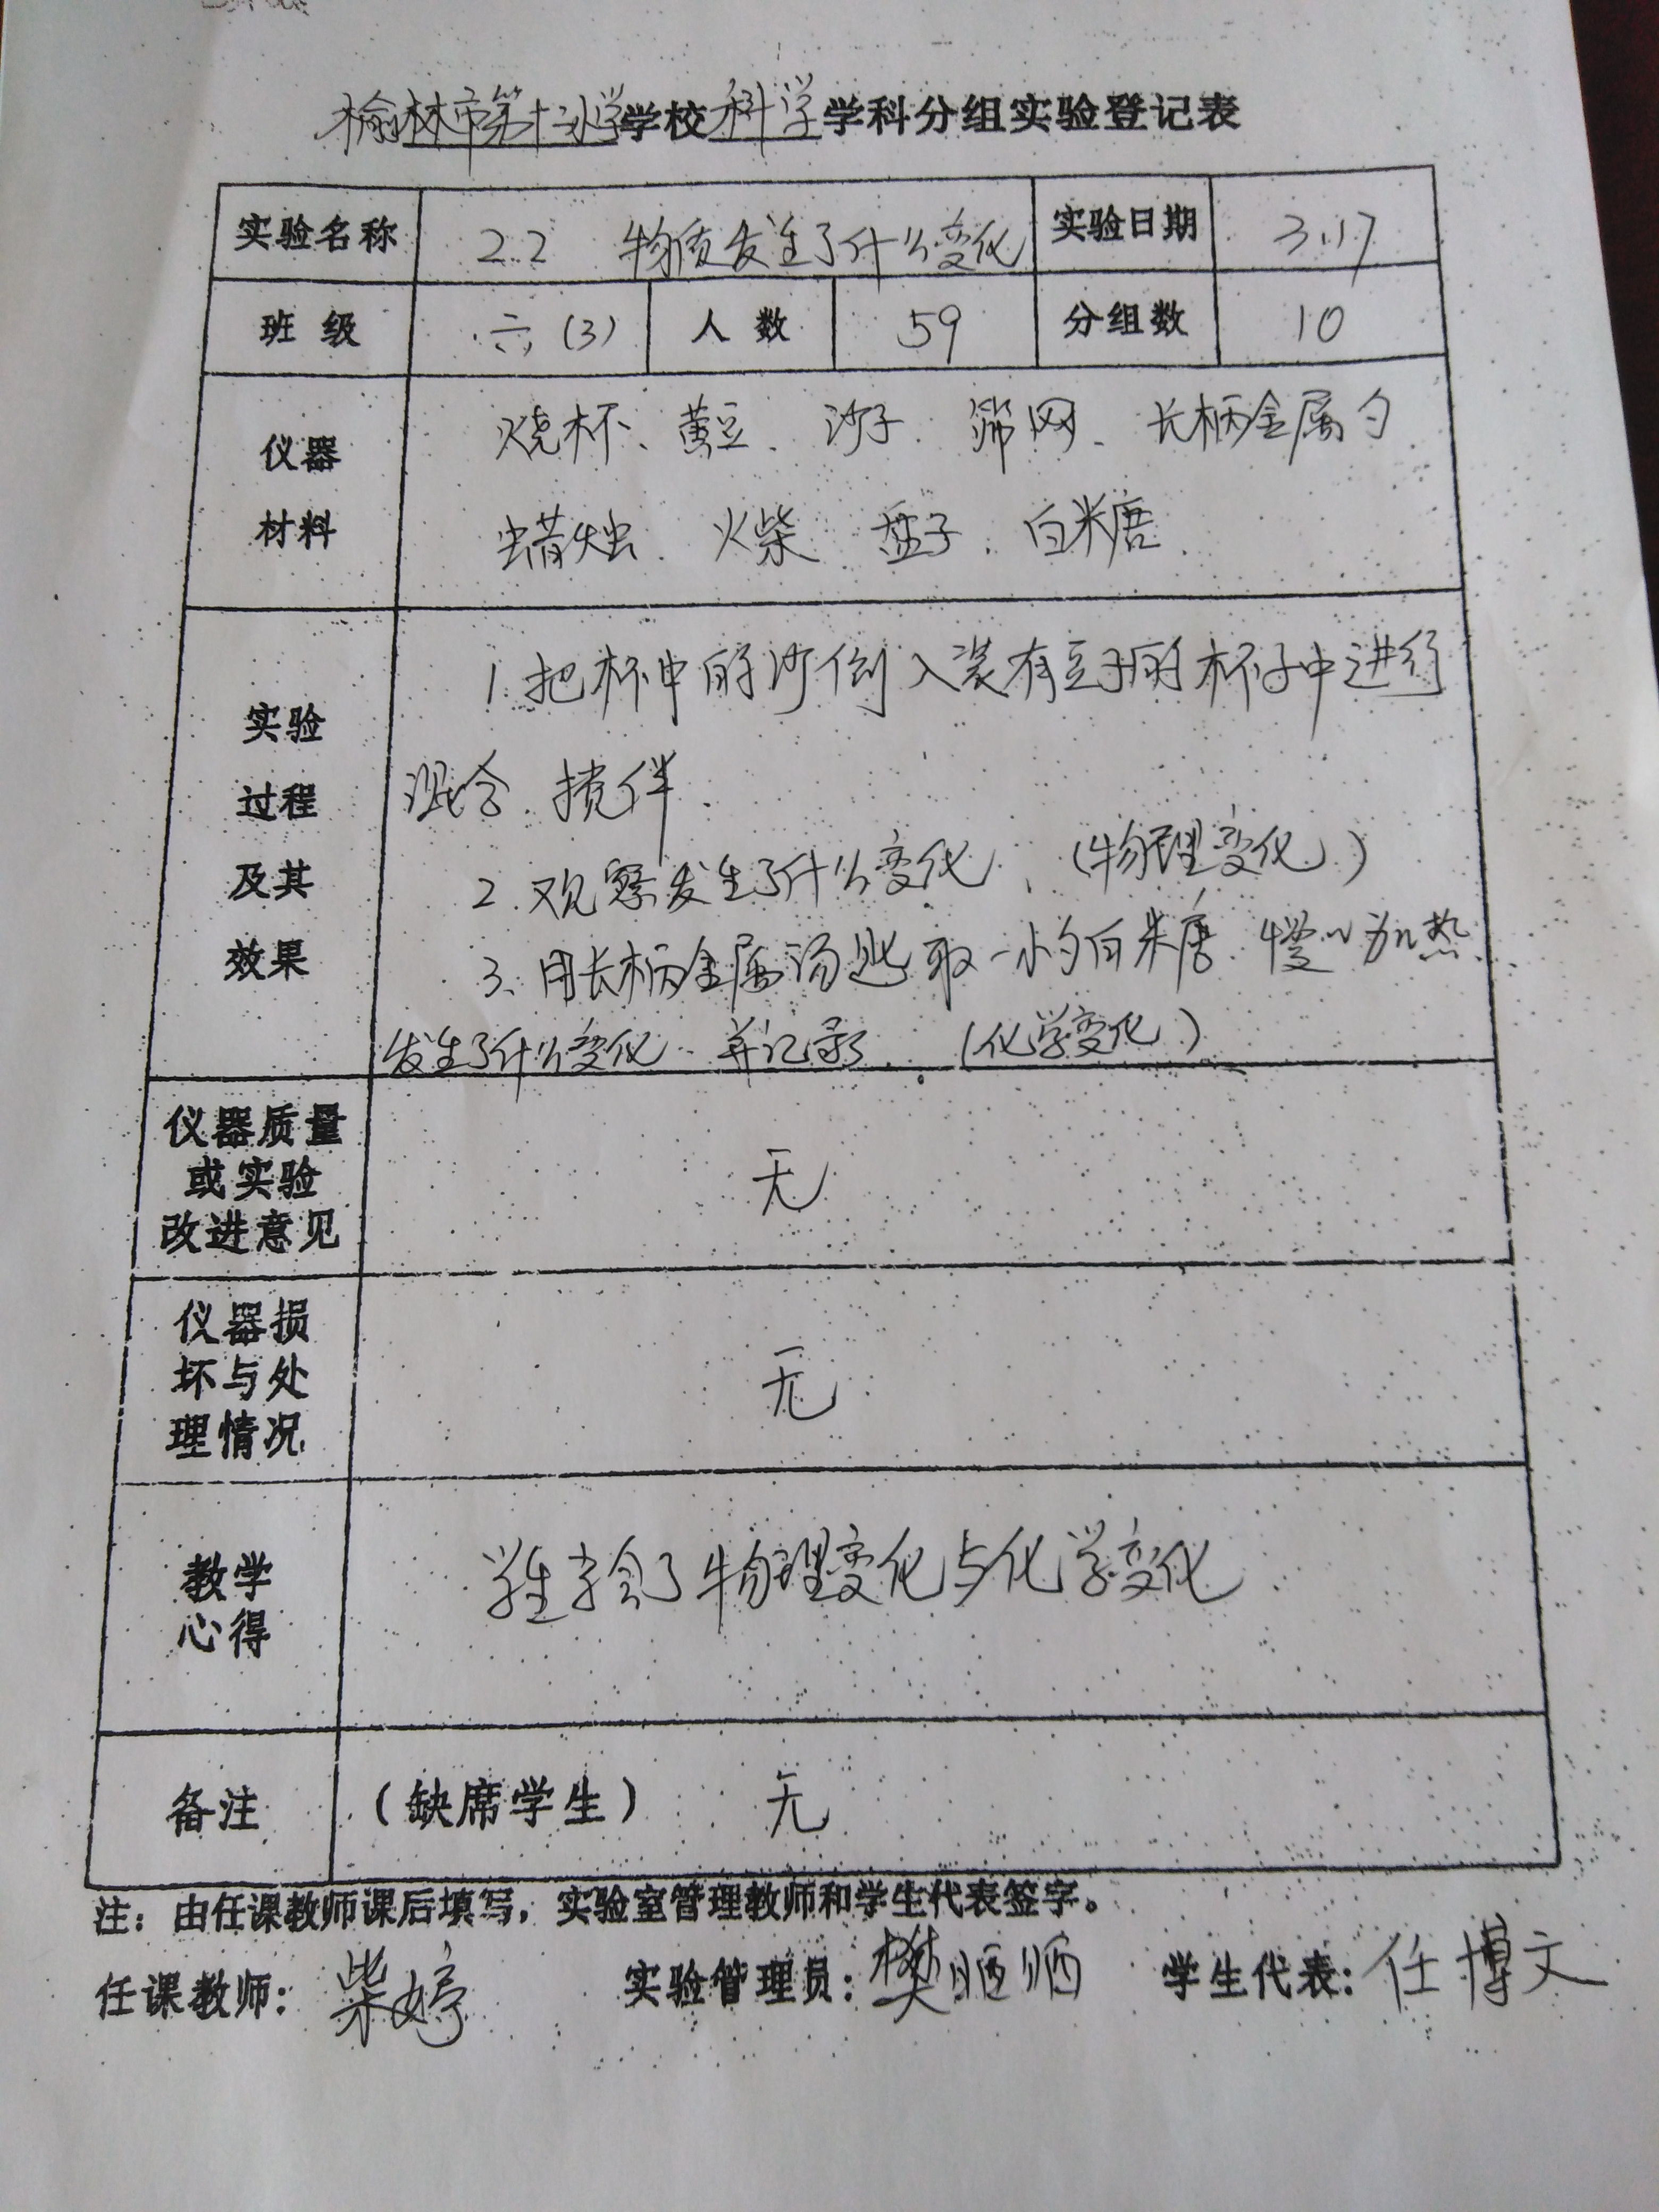 榆林市第十二小学学校科学学科分组实验登记表
实验名称 2.2 物质发生了什么变化 实验日期 3.17
班级 六(3) 人数 59 分组数 10
仪器
材料
烧杯、黄豆、沙子、筛网、长柄金属勺
蜡烛、火柴 盘子、白米糖
实验
过程
及其
效果
1.把杯中的沙倒入装有豆子的杯子中进行
混合、搅伴.
2.观察发生了什么变化.(物理变化)
3.用长柄金属汤匙取一小勺白米唐.慢慢加热
发生了什么变化.并记录.(化学变化)
仪器质量
或实验
改进意见
无
仪器损
坏与处
理情况
无
教学
心得
学生学会了物理变化与化学变化.
备注 (缺席学生) 无
注：由任课教师课后填写，实验室管理教师和学生代表签字。
任课教师：柴婷 实验管理员：樊晒晒 学生代表：任博文